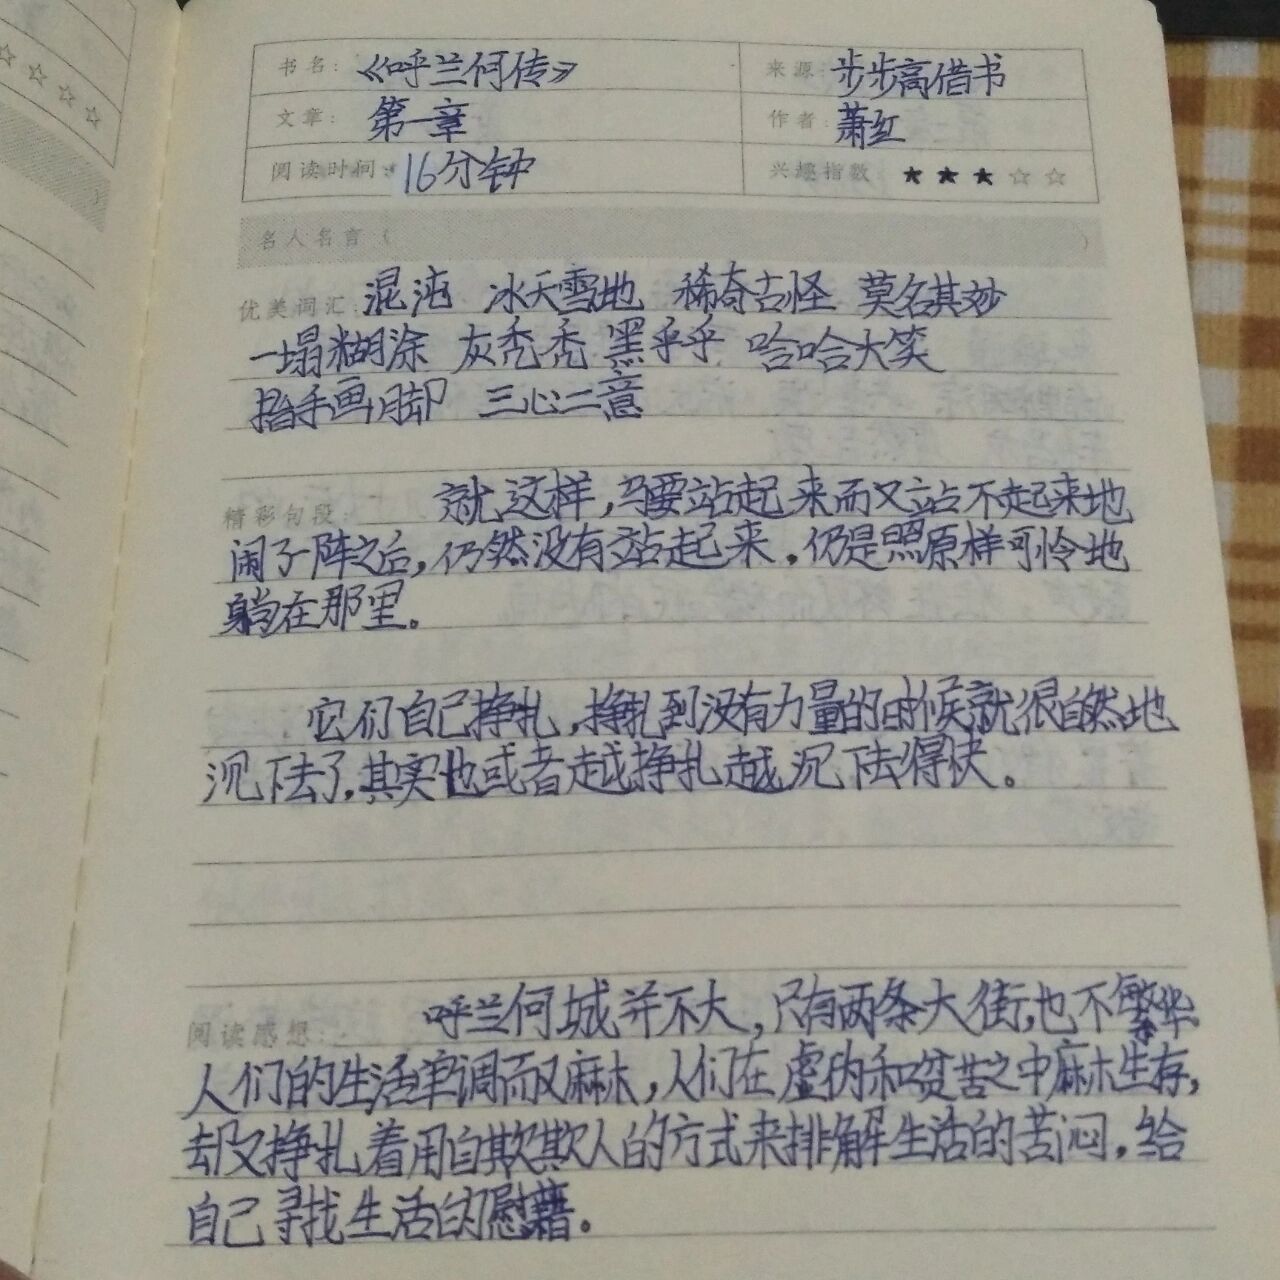 书名：《呼兰何传》 来源：步步高借书
文章：第一章 作者：萧红
阅读时间：16分钟 兴趣指数 ★★★☆☆
名人名言（ ）
优美词汇：混沌 冰天雪地 稀奇古怪 莫名其妙
一塌糊涂 灰秃秃 黑乎乎 哈哈大笑
指手画脚 三心二意
精彩句段：就这样，马要站起来而又站不起来地
闹了阵之后，仍然没有站起来，仍是照原样可怜地
躺在那里。
它们自己挣扎，挣扎到没有力量的时候就很自然地
沉下去了，其实也或者越挣扎越沉下去得快。
阅读感想：呼兰何城并不大，只有两条大街，也不繁华
人们的生活单调而又麻木，人们在虚伪和贫苦之中麻木生存，
却又挣扎着用自欺欺人的方式来排解生活的苦闷，给
自己寻找生活的慰藉。